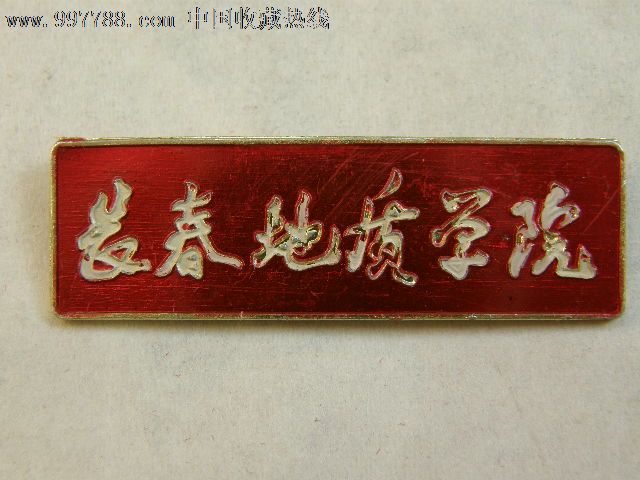 www.997788.com 中国收藏热线
长春地质学院